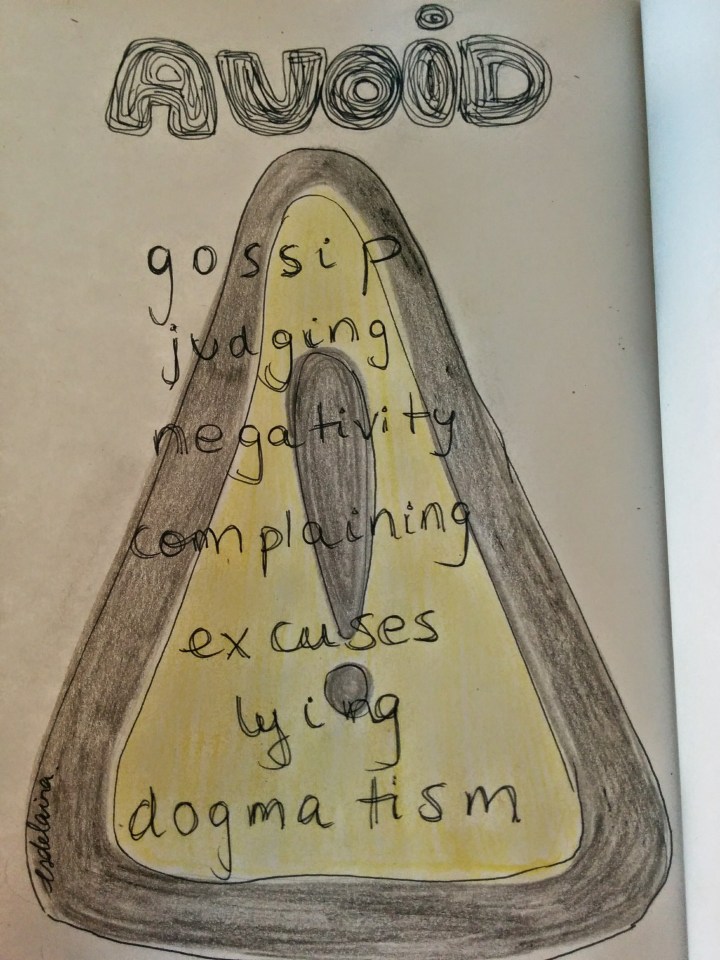 AVOiD
gossip
judging
negativity
complaining
excuses
lying
dogmatism